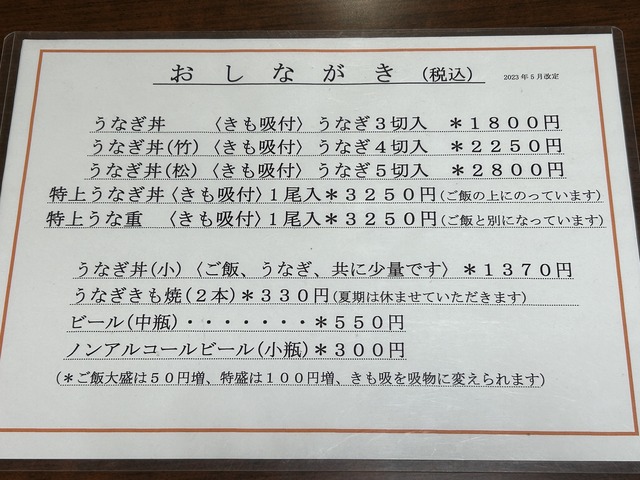 おしながき (税込) 2023年5月改定
うなぎ丼 〈きも吸付〉 うなぎ３切入 ＊１８００円
うなぎ丼(竹) 〈きも吸付〉 うなぎ４切入 ＊２２５０円
うなぎ丼(松) 〈きも吸付〉 うなぎ５切入 ＊２８００円
特上うなぎ丼〈きも吸付〉１尾入＊３２５０円(ご飯の上にのっています)
特上うな重 〈きも吸付〉１尾入＊３２５０円(ご飯と別になっています)
うなぎ丼(小) 〈ご飯、うなぎ、共に少量です〉 ＊１３７０円
うなぎきも焼(２本)＊３３０円(夏期は休ませていただきます)
ビール(中瓶)・・・・・・・＊５５０円
ノンアルコールビール(小瓶)＊３００円
(＊ご飯大盛は５０円増、特盛は１００円増、きも吸を吸物に変えられます)